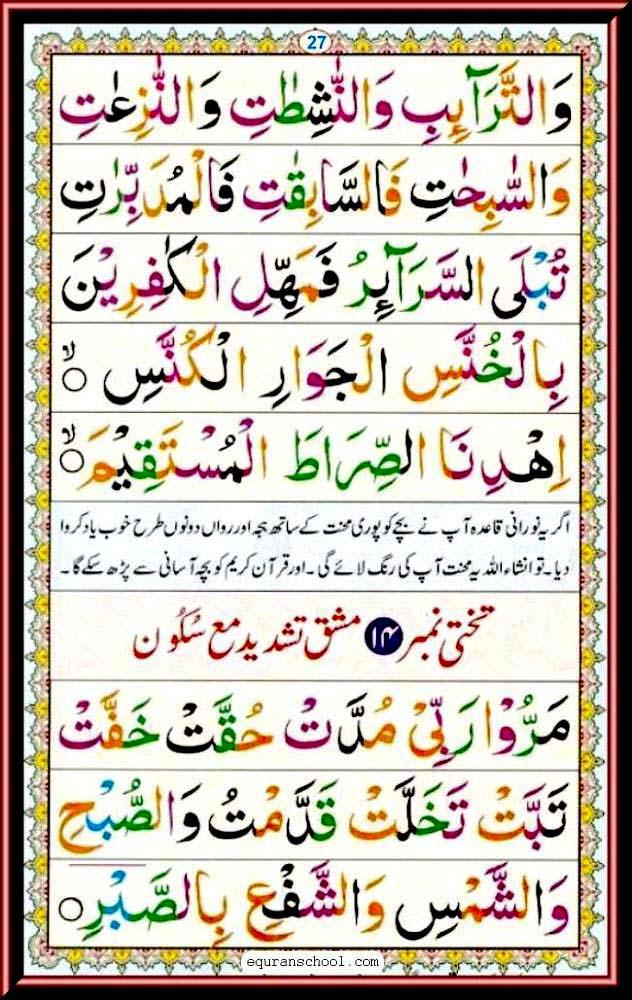 27
وَالتَّرَآئِبِ وَالنّٰشِطٰتِ وَالنّٰزِعٰتِ
وَالسّٰبِحٰتِ فَالسَّابِقٰتِ فَالْمُدَبِّرٰتِ
تُبْلَى السَّرَآئِرُ فَمَهِّلِ الْكٰفِرِيْنَ
بِالْخُنَّسِ الْجَوَارِ الْكُنَّسِ ۙ○
اِهْدِنَا الصِّرَاطَ الْمُسْتَقِيْمَ ۙ○
اگر یہ نورانی قاعدہ آپ نے بچے کو پوری محنت کے ساتھ ہجہ اور رواں دونوں طرح خوب یاد کروا
دیا۔ تو انشاء اللہ یہ محنت آپ کی رنگ لائے گی۔ اور قرآن کریم کو بچہ آسانی سے پڑھ سکے گا۔
تختی نمبر ۱۴ مشق تشدید مع سکُون
مَرُّوْا رَبِّيْ مُدَّتْ حُقَّتْ خَفَّتْ
تَبَّتْ تَخَلَّتْ قَدَّمْتُ وَالصُّبْحِ
وَالشَّمْسِ وَالشَّفْعِ بِالصَّبْرِ ○
equranschool.com